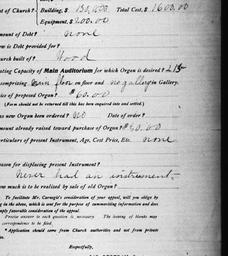 of Church? Building, $ Total Cost, $ 1600.00
Equipment, $ 200.00
Amount of Debt? none
is Debt provided for?
Church built of? Wood
Seating Capacity of Main Auditorium for which Organ is desired? 215
comprising on floor and no gallery in Gallery.
Price of proposed Organ? $
(Form should not be returned till this has been inquired into and settled.)
new Organ been Ordered? no Date of order?
Amount already raised toward purchase of Organ?
Particulars of present Instrument, Age, Cost Price, Etc. none
Reason for displacing present Instrument?
never had an instrument
much is to be realized by sale of old Organ?
To facilitate Mr. Carnegie's consideration of your appeal, will you oblige by
in the above, which is sent for the purpose of summarizing information and does
imply favorable consideration of the appeal.
Precise answer to each question is necessary. The leaving of blanks may
correspondence to be filed.
* Application should come from Church Authorities and not from private
Respectfully,